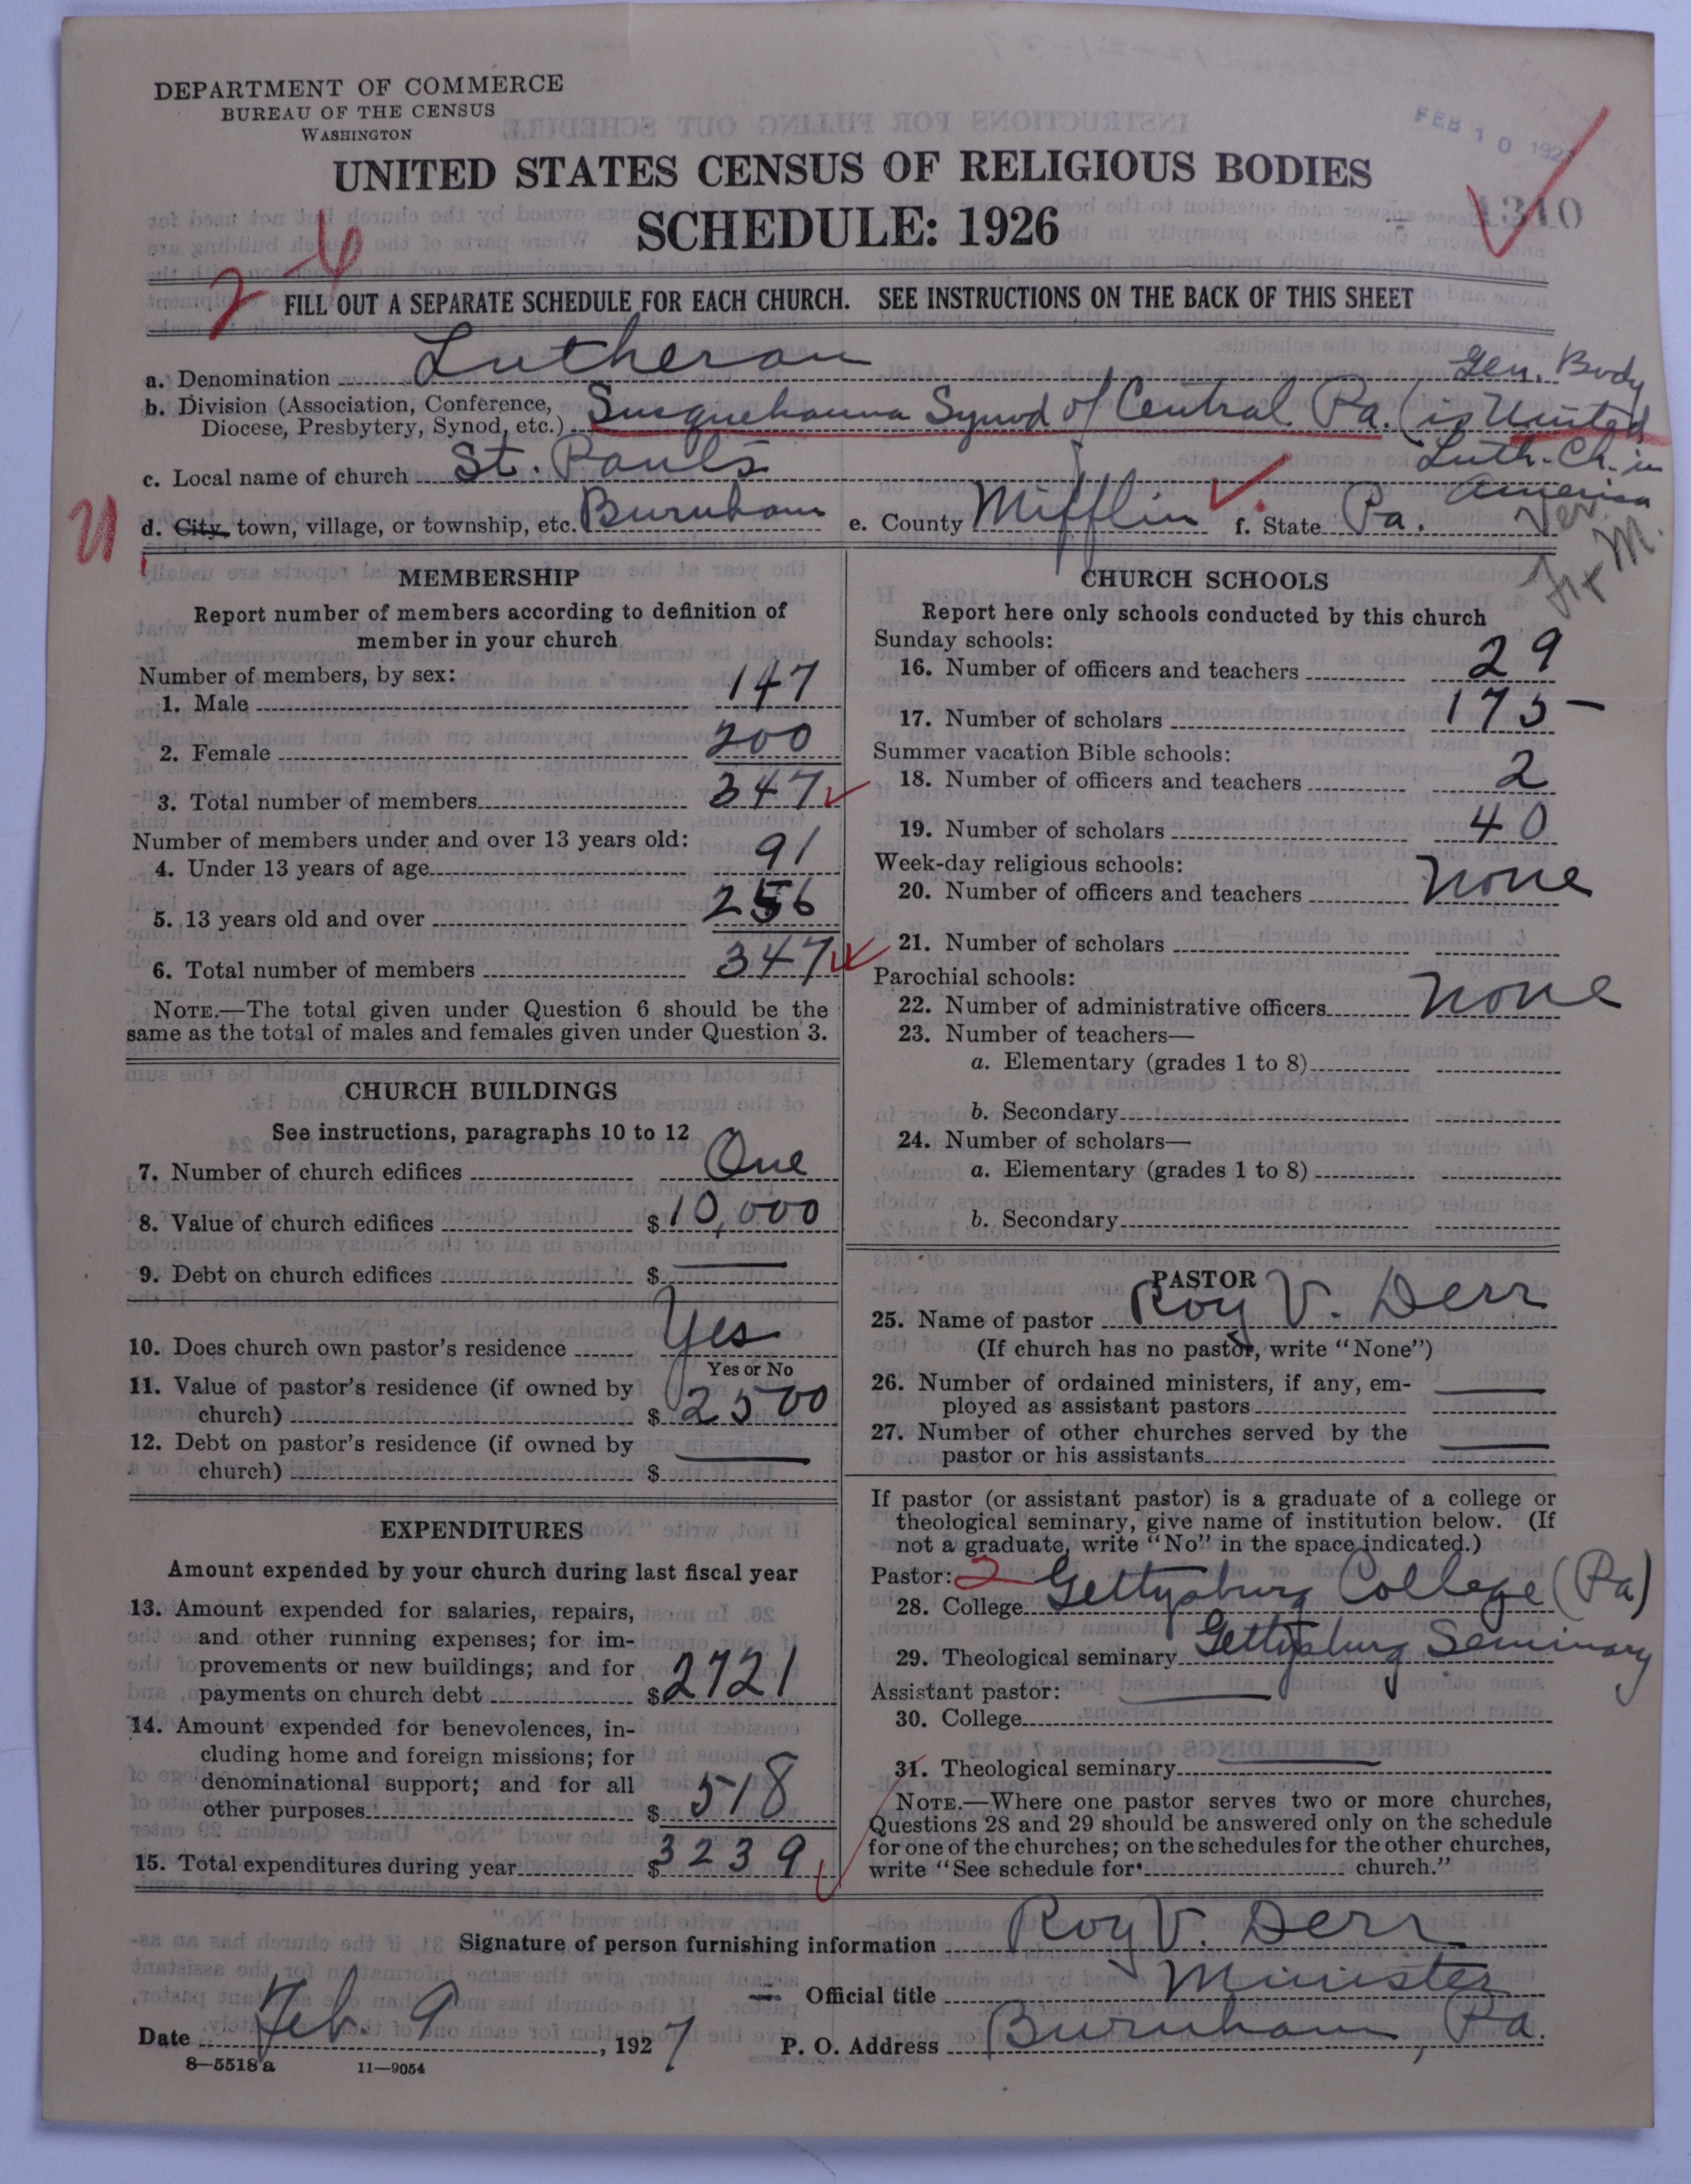 DEPARTMENT OF COMMERCE
BUREAU OF THE CENSUS
WASHINGTON
FEB 10 192
UNITED STATES CENSUS OF RELIGIOUS BODIES
SCHEDULE: 1926
1310
2-6
FILL OUT A SEPARATE SCHEDULE FOR EACH CHURCH. SEE INSTRUCTIONS ON THE BACK OF THIS SHEET
a. Denomination Lutheran
Gen. Body
b. Division (Association, Conference, Diocese, Presbytery, Synod, etc.) Susquehanna Synod of Central Pa. (is United
Luth. Ch. in
America
c. Local name of church St. Pauls
d. City, town, village, or township, etc. Burnham e. County Mifflin f. State Pa.
MEMBERSHIP
Report number of members according to definition of
member in your church
Number of members, by sex:
1. Male 147
2. Female 200
3. Total number of members 347
Number of members under and over 13 years old:
4. Under 13 years of age 91
5. 13 years old and over 256
6. Total number of members 347
NOTE.—The total given under Question 6 should be the
same as the total of males and females given under Question 3.
CHURCH BUILDINGS
See instructions, paragraphs 10 to 12
7. Number of church edifices One
8. Value of church edifices $10,000
9. Debt on church edifices $ —
10. Does church own pastor's residence Yes
Yes or No
11. Value of pastor's residence (if owned by
church) $ 2500
12. Debt on pastor's residence (if owned by
church) $ —
EXPENDITURES
Amount expended by your church during last fiscal year
13. Amount expended for salaries, repairs,
and other running expenses; for im-
provements or new buildings; and for
payments on church debt $2721
14. Amount expended for benevolences, in-
cluding home and foreign missions; for
denominational support; and for all
other purposes $ 518
15. Total expenditures during year $3239
CHURCH SCHOOLS
Report here only schools conducted by this church
Sunday schools:
16. Number of officers and teachers 29
17. Number of scholars 175
Summer vacation Bible schools:
18. Number of officers and teachers 2
19. Number of scholars 40
Week-day religious schools:
20. Number of officers and teachers None
21. Number of scholars
Parochial schools:
22. Number of administrative officers None
23. Number of teachers—
a. Elementary (grades 1 to 8)
b. Secondary
24. Number of scholars—
a. Elementary (grades 1 to 8)
b. Secondary
PASTOR
25. Name of pastor Roy V. Derr
(If church has no pastor, write "None")
26. Number of ordained ministers, if any, em-
ployed as assistant pastors —
27. Number of other churches served by the
pastor or his assistants —
If pastor (or assistant pastor) is a graduate of a college or
theological seminary, give name of institution below. (If
not a graduate, write "No" in the space indicated.)
Pastor: 2
28. College Gettysburg College (Pa)
29. Theological seminary Gettysburg Seminary
Assistant pastor: —
30. College
31. Theological seminary —
NOTE.—Where one pastor serves two or more churches,
Questions 28 and 29 should be answered only on the schedule
for one of the churches; on the schedules for the other churches,
write "See schedule for church."
Signature of person furnishing information Roy V. Derr
Official title Minister
Date Feb. 9, 1927 P. O. Address Burnham, Pa.
8—5518 a 11—9054